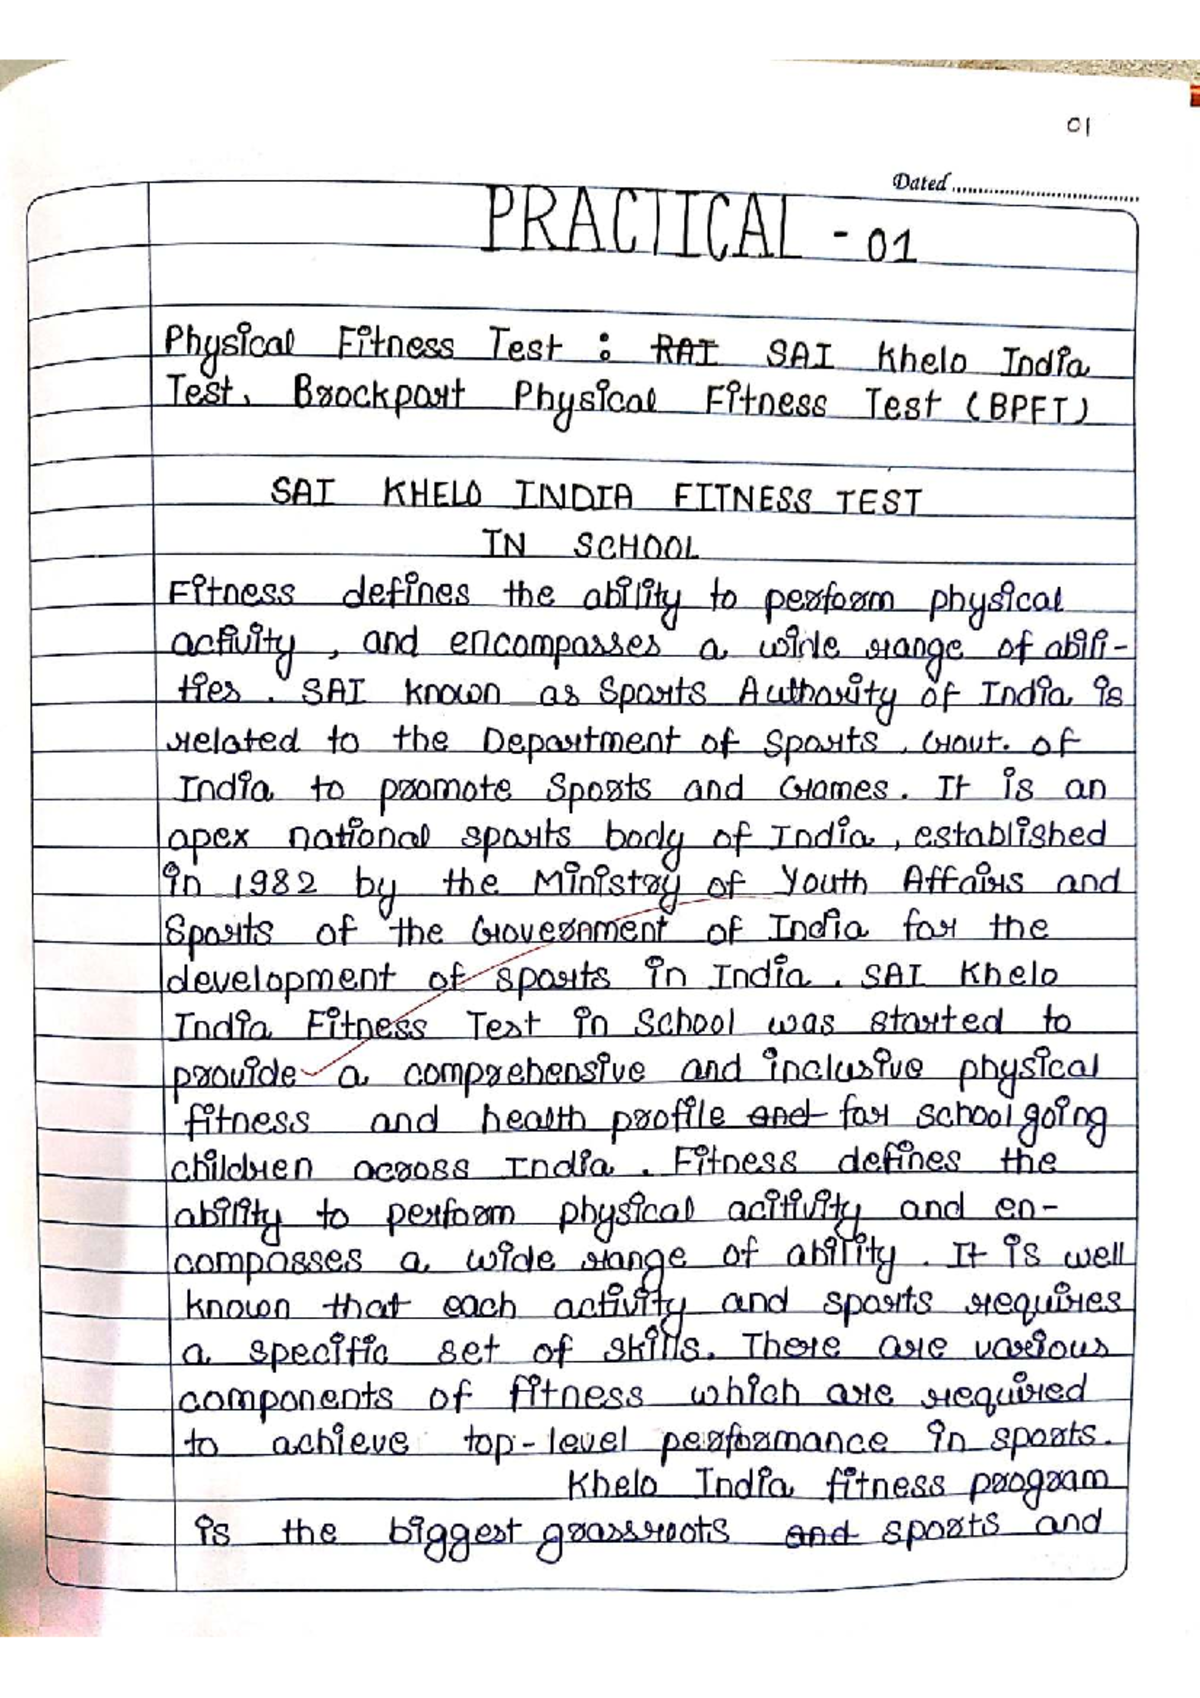 01
Dated
PRACTICAL - 01
Physical Fitness Test : RAI SAI Khelo India
Test. Brockport Physical Fitness Test (BPFT)
SAI KHELO INDIA FITNESS TEST
IN SCHOOL
Fitness defines the ability to perform physical
activity, and encompasses a wide range of abili-
ties. SAI known as Sports Authority of India is
related to the Department of Sports, Govt. of
India to promote Sports and Games. It is an
apex national sports body of India, established
in 1982 by the Ministry of Youth Affairs and
Sports of the Government of India for the
development of sports in India. SAI Khelo
India Fitness Test in School was started to
provide a comprehensive and inclusive physical
fitness and health profile and for school going
children across India. Fitness defines the
ability to perform physical acitivity and en-
compasses a wide range of ability. It is well
known that each activity and sports requires
a specific set of skills. There are various
components of fitness which are required
to achieve top-level performance in sports.
Khelo India fitness program
is the biggest grassroots and sports and